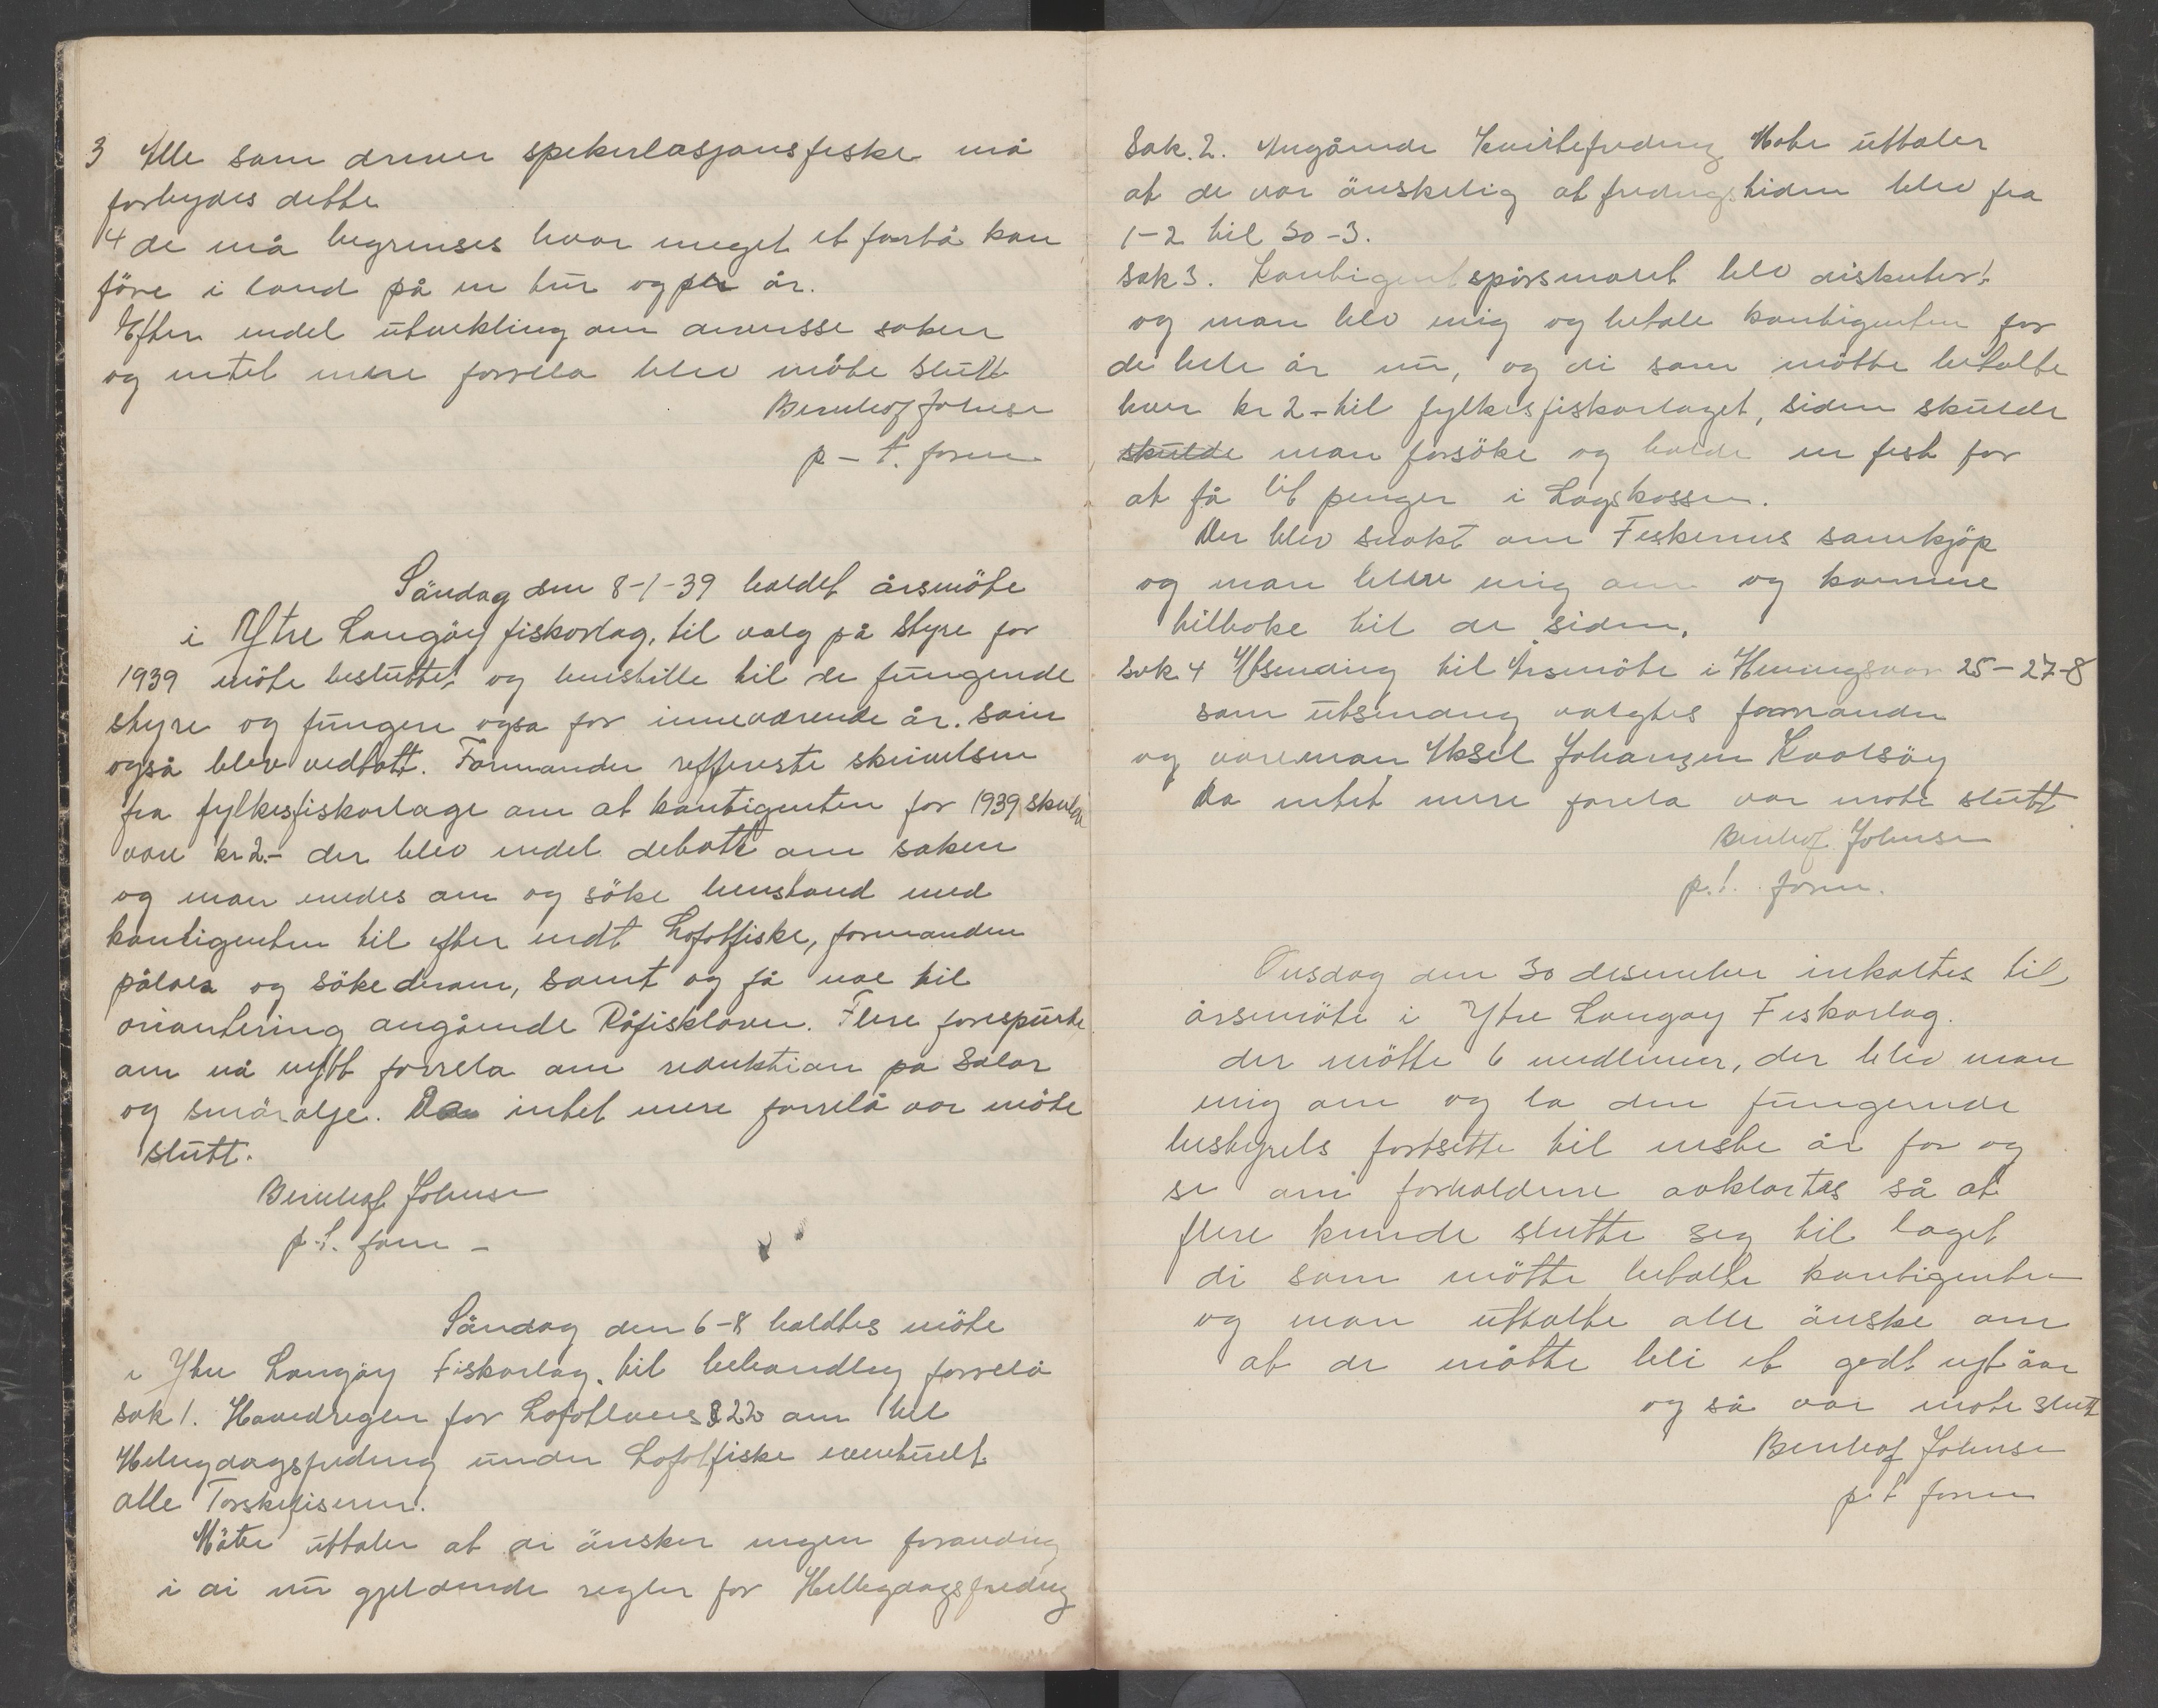 3 Alle som driver spekulasjonsfiske må
forbydes dette
4 de må begrenses hvor meget et fartö kan
före i land på en tur og per år.
Efter endel utvikling om avvisse saken
og intet mere forrela blev möte slutt
Bernhof Johnse
p-t. form

Söndag den 8-1-39 holdet årsmöte
i Ytre Langöy fiskarlag, til valg på styre for
1939 möte besluttet og henstille til de fungende
styre og fungere ogsa for inneværende år. som
også blev vedtatt. Formanden reffereste skrivelsen
fra fylkesfiskarlage om at kontigenten for 1939 skulde
være kr 2.- der blev endel debatt om saken
og man enedes om og söke henstand med
kontigenten til efter endt Lofotfiske, formanden
pålaes og söke derom, samt og få noe til
oriantering angående Råfiskloven. Flere forespurte
om nå nytt forrela om reduktion pa Solar
og smörolje. Da intet mere forrelå var möte
slutt.
Bernhof Johnse
p.t. form -

Söndag den 6-8 holdtes möte
i Ytre Langöy Fiskarlag, til behandling forrelå
sak 1. Hovedregler for Lofotlovens § 22 om hel
Helligdagsfredning under Lofotfiske eventuelt
alle Torskefiserier.
Möte uttaler at di önsker ingen forandring
i di nu gjeldende regler for Helligdagsfredng
Sak. 2. Angående Kveitefredning Möte uttaler
at de var önskelig at fredngstiden blev fra
1-2 til 30-3.
Sak 3. Kontigentspörsmalet blev diskutert
og man blev enig og betale kontigenten for
de hele år nu, og di som mötte betalte
hver kr 2- til fylkesfiskarlaget, siden skulde
skulde man forsöke og holde en fest for
at få lit penger i Lagskassen.
Der blev snakt om Fiskernes samkjöp
og man blev enig om og komme
tilbake til de siden.
Sak 4 Utsending til Årsmöte i Henningsvær 25-27-8
som utsending valgtes formanden
og vareman Aksel Johansen Kvalsöy
Da intet mere forela var möte slutt
Bernhof Johnse
p.t. form.

Onsdag den 30 desember inkaltes til
årsmöte i Ytre Langöy Fiskarlag.
der mötte 6 medlemer, der blev man
enig om og la den fungerende
bestyrels fortsette til neste år for og
se om forholdene avklartes så at
flere kunde slutte seg til laget
di som mötte betalte kontigenten
og man uttalte alle önske om
at de måtte bli et godt nyt åar
og så var möte slutt
Bernhof Johnse
p.t form